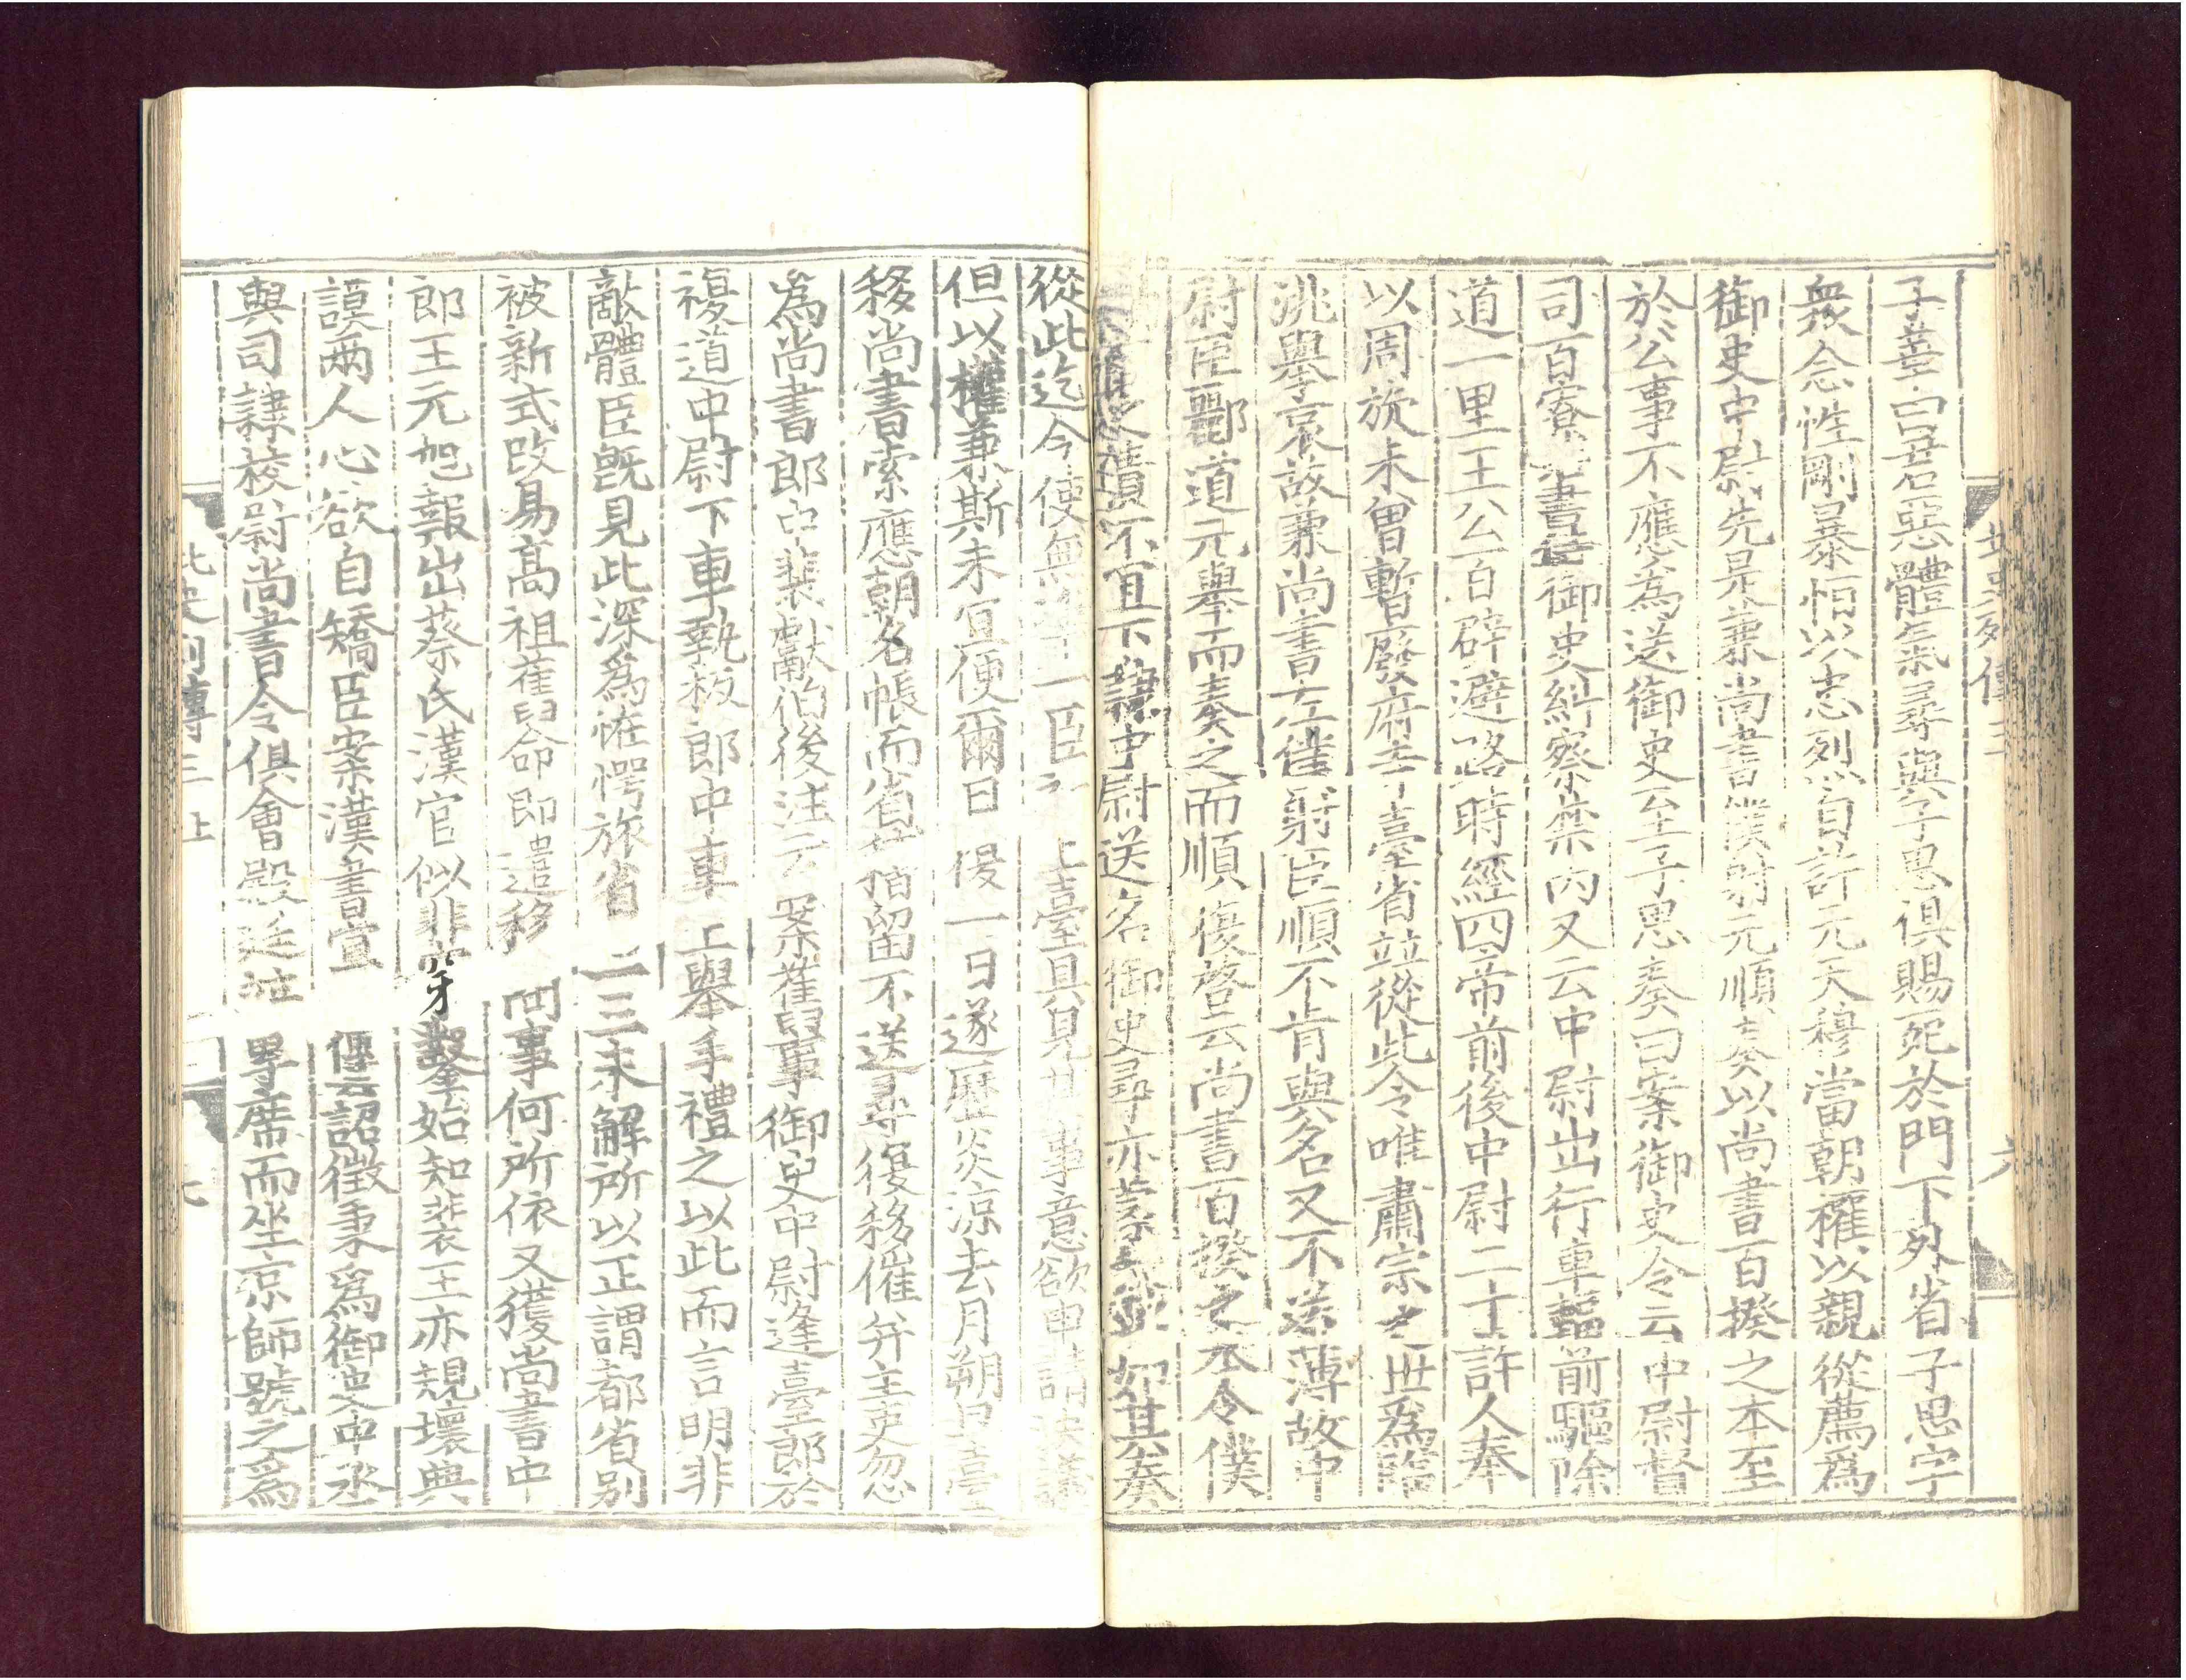 子華曰君惡體氣尋與子思俱賜死於門下外省子思字
衆念性剛暴恒以忠烈自許元天穆當朝權以親從薦爲
御史中尉先是兼尚書僕射元順奏以尚書百揆之本至
於公事不應爲送御史至子思奏曰案御史令云中尉督
司百寮書侍御史糾察禁内又云中尉出行車輻前驅除
道一里王公百辟避路時經四帝前後中尉二十許人奉
以周旋未曾暫廢府寺臺省並從此令唯肅宗之世爲臨
洮舉哀故兼尚書左僕射臣順不肯與名又不送薄故中
尉臣酈道元舉而奏之而順復啓云尚書百揆之本令僕
不宜下中尉送名御史尋亦蒙如其奏
從此迄今使無一臣上臺具見其事意欲申請決議
但以權兼斯未宜便爾日復一日遂歷炎涼去月朔旦臺
移尚書索應朝名帳而省稽留不送尋復移催并主吏忽
爲尚書郎中裴獻伯後注云案舊事御史中尉逢臺郎於
複道中尉下車執板郎中車上舉手禮之以此而言明非
敵體臣旣見此深爲恠愕旅省二三未解所以正謂都省別
被新式改易髙祖舊命即遣移問事何所依又獲尚書中
郎王元旭報出蔡氏漢官似非穿鑿始知裴王亦規壞典
謨兩人心欲自矯臣案漢書宣傳云詔徵秉爲御史中丞
與司隷校尉尚書令俱會殿廷並專席而坐京師號之爲
北史列傳三
六
北史列傳三上
七